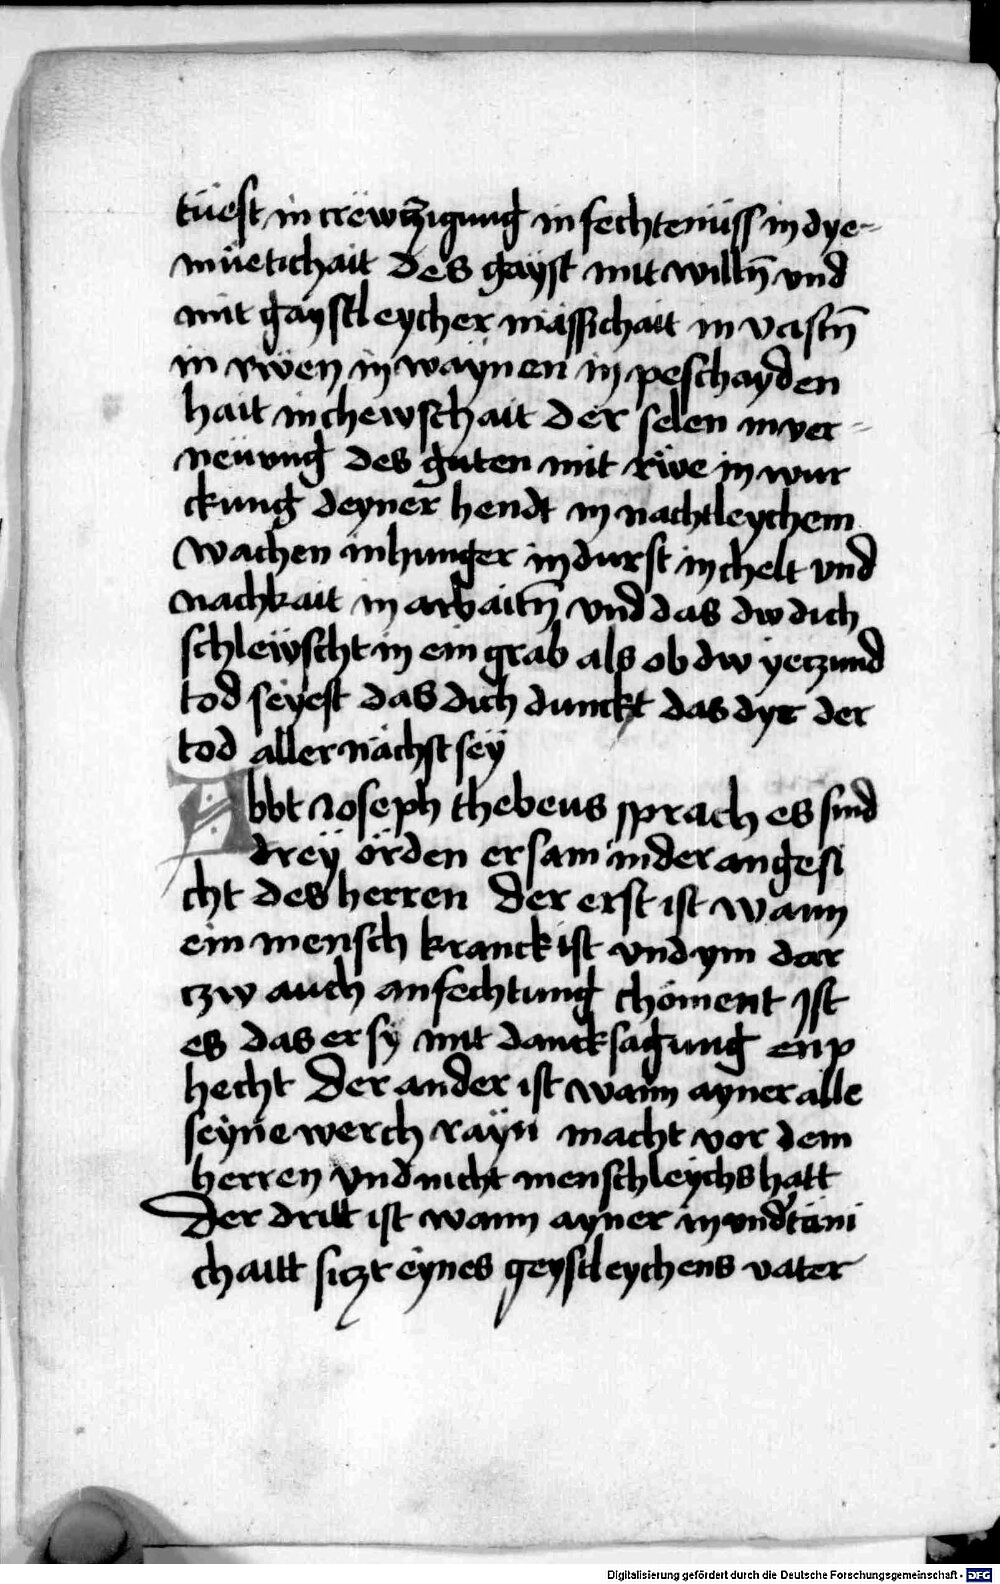 tüest in crëwtzigung in fechtenüss in dye-
müetichait des gayst mit willn̄ vnd
mit gaystleycher mässichait in vastn̄
in rwen in waynen in peschayden
hait in chewschait der selen in ver-
neüung des guten mit rwe in wur
ckung deyner hendt in nachtleychem
wachen in hunger in durst in chelt vnd
nachkait in arbaitn̄ vnd das dw dich
schlewscht in ein grab als ob dw yetzund
tod seyest das dich dunckt das dyr der
tod aller nächst sey
Abbt Joseph thebeus sprach es sind
drey örden ersam in der angesi
cht des herren Der erst ist wann
ein mensch kranck ist vnd ym dar
tzw auch anfechtung chöment Ist
es das er sy mit dancksagung enp
hecht Der ander ist wann ayner alle
seyne werch rayn macht vor dem
herren vnd nicht menschleychs hatt
Der dritt ist wann ayner in vnd᾽täni
chaitt sitzt eynes geystleychens vater
Digitalisierung gefördert durch die Deutsche Forschungsgemeinschaft - DFG